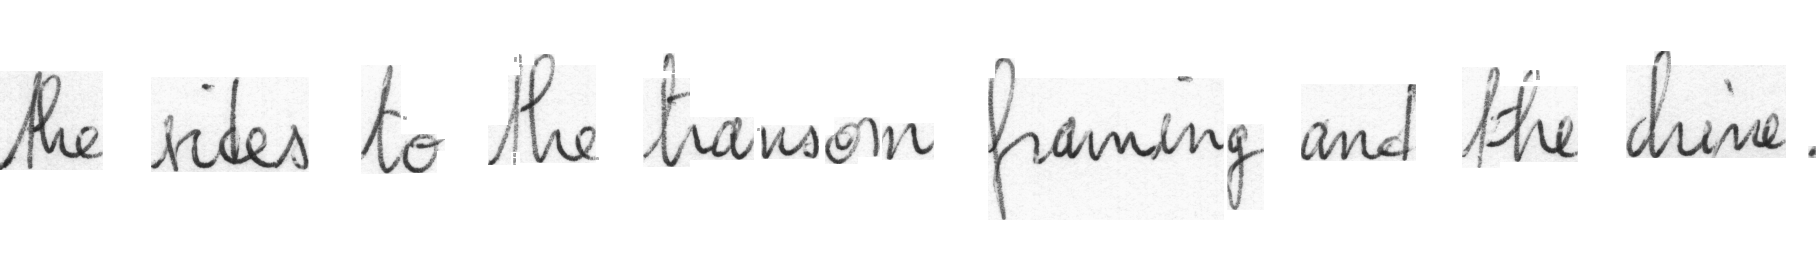 the sides to the transom framing and the chine.